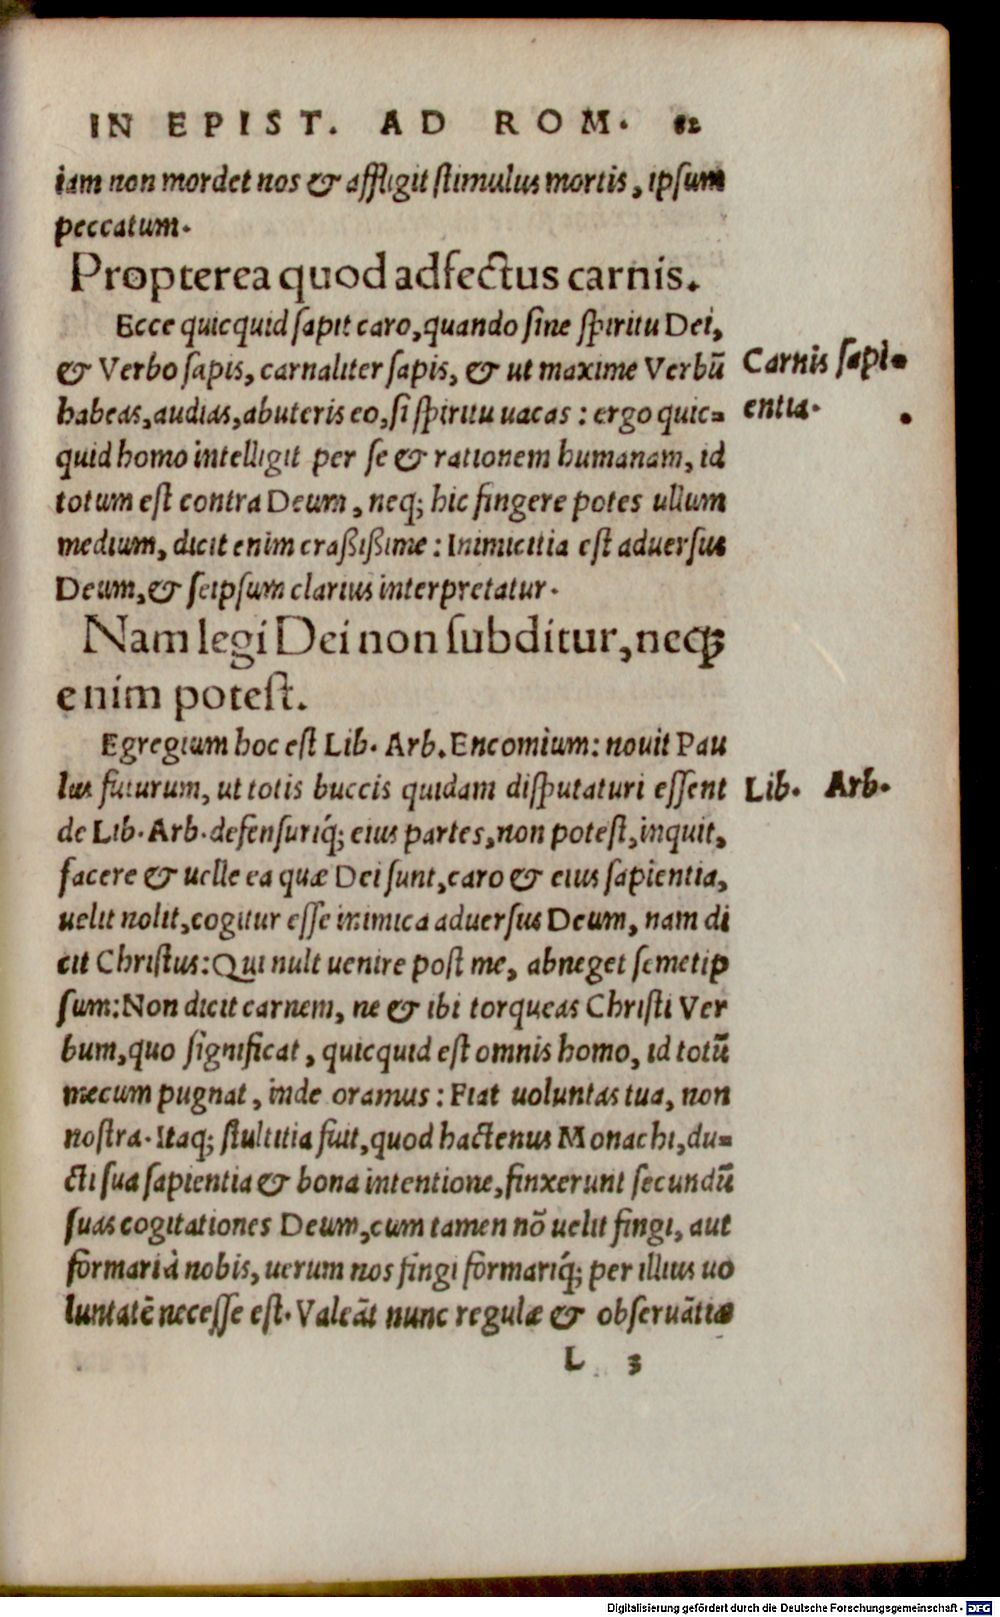 IN EPIST. AD ROM. 82
iam non mordet nos & affligit stimulus mortis, ipsum
peccatum.
Propterea quod adfectus carnis.
Ecce quicquid sapit caro, quando sine spiritu Dei,
& Verbo sapis, carnaliter sapis, & ut maxime Verbū
Carnis sapi-
habeas, audias, abuteris eo, si spiritu uacas : ergo quic=
entia.
quid homo intelligit per se & rationem humanam, id
totum est contra Deum, neq; hic fingere potes ullum
medium, dicit enim craßißime : Inimicitia est aduersus
Deum, & seipsum clarius interpretatur.
Nam legi Dei non subditur, neq;
enim potest.
Egregium hoc est Lib. Arb. Encomium: nouit Pau
lus futurum, ut totis buccis quidam disputaturi essent
Lib. Arb.
de Lib. Arb. defensuriq́; eius partes, non potest, inquit,
facere & uelle ea quæ Dei sunt, caro & eius sapientia,
uelit nolit, cogitur esse inimica aduersus Deum, nam di
cit Christus: Qui uult uenire post me, abneget semetip
sum: Non dicit carnem, ne & ibi torqueas Christi Ver
bum, quo significat, quicquid est omnis homo, id totū
mecum pugnat, inde oramus : Fiat uoluntas tua, non
nostra. Itaq; stultitia fuit, quod hactenus Monachi, du=
cti sua sapientia & bona intentione, finxerunt secundū
suas cogitationes Deum, cum tamen nō uelit fingi, aut
formari à nobis, uerum nos fingi formariq́; per illius uo
luntatē necesse est. Valeāt nunc regulæ & obseruātiæ
L 3
Digitalisierung gefördert durch die Deutsche Forschungsgemeinschaft - DFG